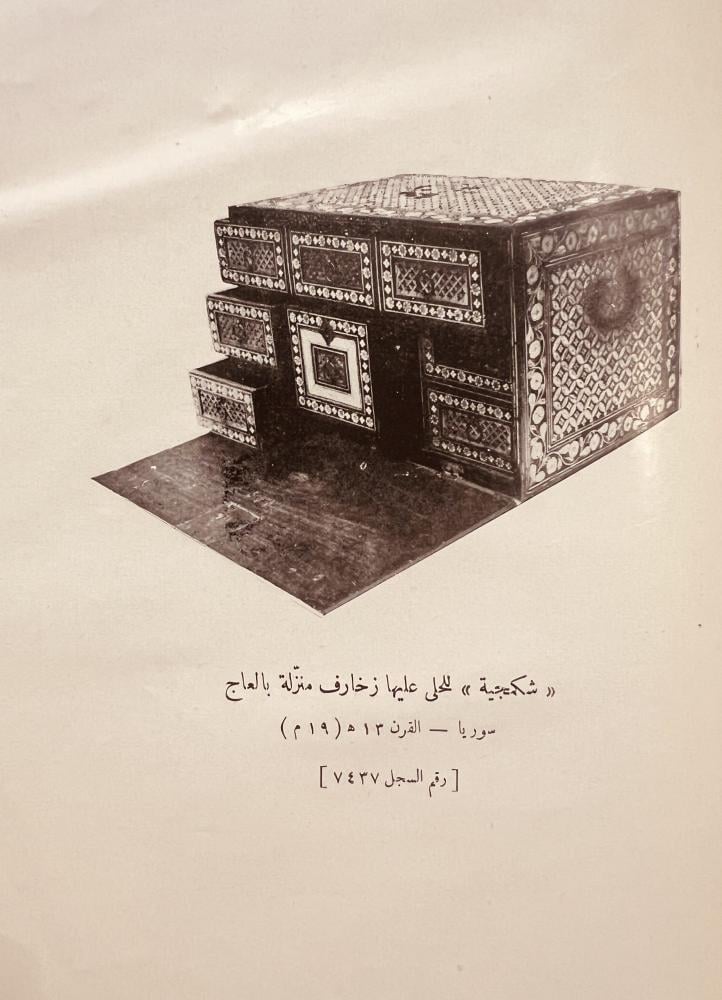 « شكمجية » للحلى عليها زخارف منزّلة بالعاج
سوريا — القرن ١٣ ه (١٩ م)
[ رقم السجل ٧٤٣٧ ]